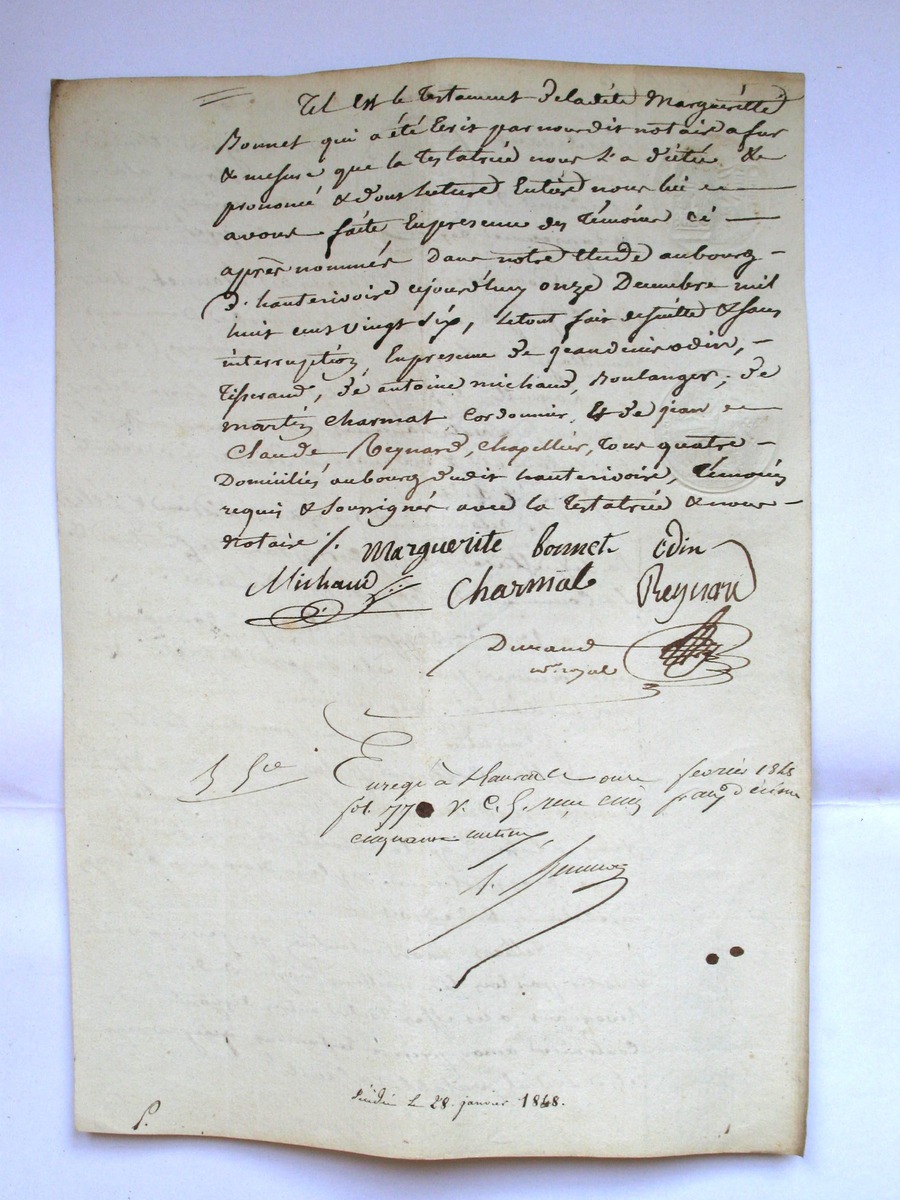 Tel est le testament de ladite Margueritte
Bonnet qui a été Ecrit par nous dit notaire a fur
& mesure que la testatrice nous l'a dicté &
prononcé & dont lecture Entière nous lui
avons faite En presence des témoins ci
après nommés dans notre Etude au bourg
d'hauterivoire cejourd'huy onze Decembre mil
huit cent vingt six, le tout fait de suitte & sans
interruption En presence de jean denis odin,
Tisserand, de antoine michaud, Boulanger, de
martin Charmat Cordonnier, & de jean
Claude Reynard, Chapellier, tous quatre
Domiciliés au bourg dudit hauterivoire, témoins
requis & soussignés avec la testatrice & nous
Notaire ./.
Marguerite bonnet Odin
Michaud Charmat Reynard
Durand
nre royal
Enregé à onze fevrier 1848
fol. 77 v. C. 5. reçu cinq francs décime
cinquante centimes
le 28 janvier 1848.